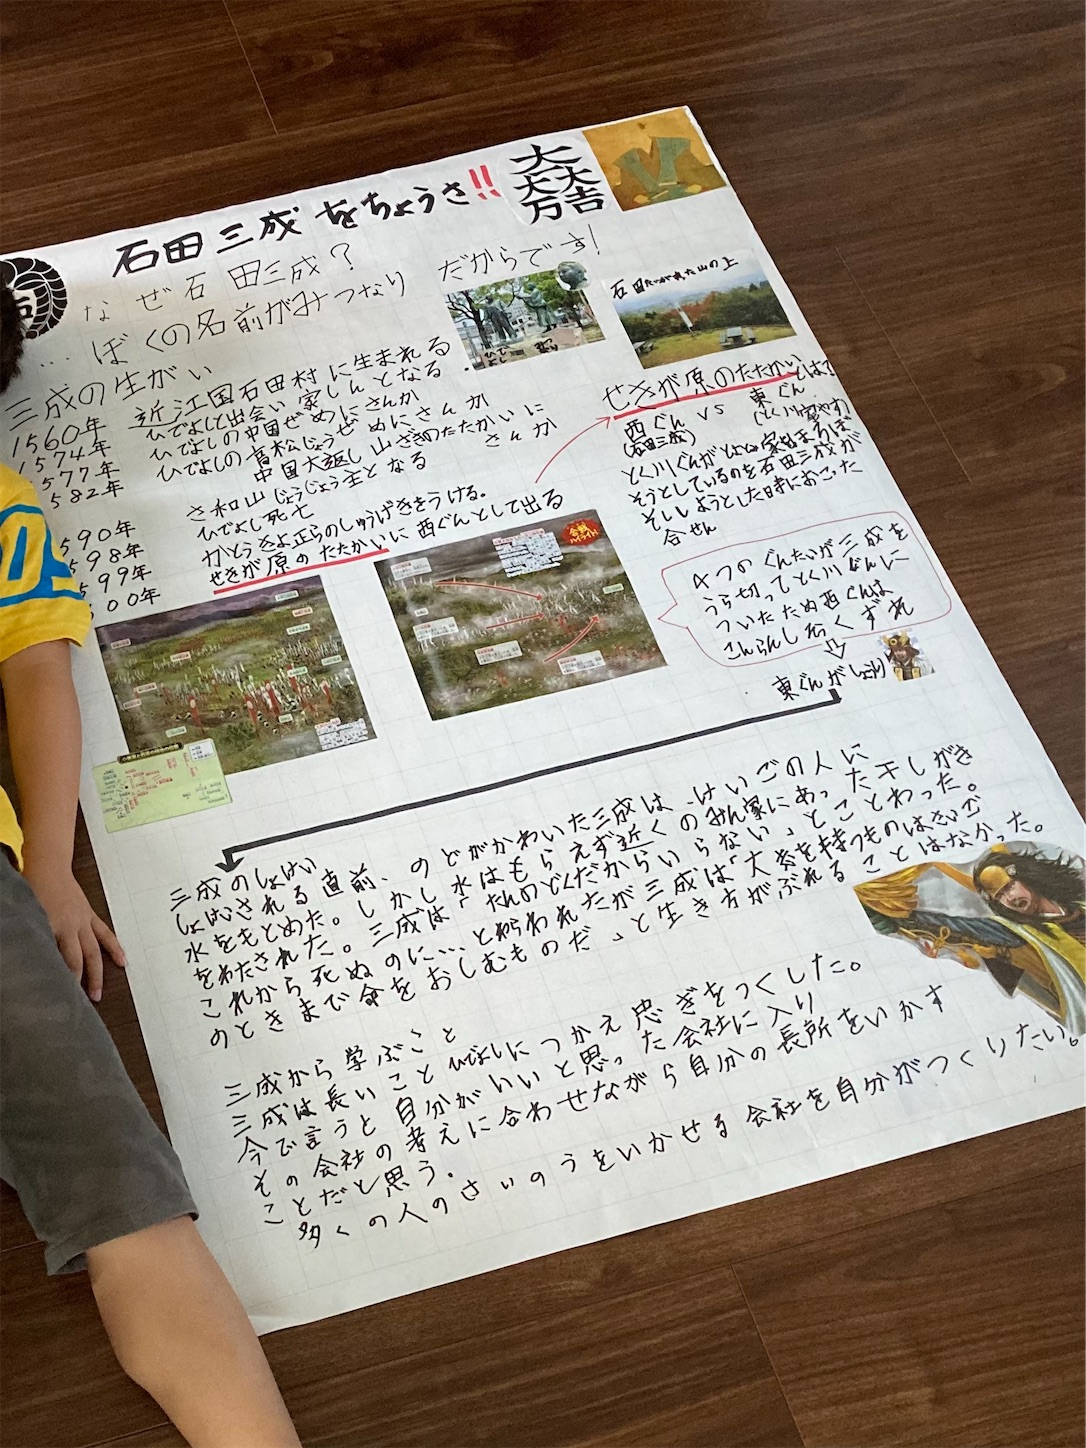 石田三成をちょうさ!!
大一大万大吉
なぜ石田三成?
…ぼくの名前がみつなり だからです!
石田たつがれた山の上
三成の生がい
1560年 近江国石田村に生まれる
1574年 ひでよしと出会い家しんとなる
1577年 ひでよしの中国ぜめにさんか
582年 ひでよしの高松じょうぜめにさんか
中国大返し 山ざきのたたかいにさんか
590年 さ和山じょうじょう主となる
598年 ひでよし死亡
599年 かとうきよ正らのしゅうげきをうける。
600年 せきが原のたたかいに西ぐんとして出る
せきが原のたたかいとは?
西ぐん vs 東ぐん
(石田三成) (とく川家やす)
とく川ぐんがとよとみ家をほろぼ
そうとしているのを石田三成が
そししようとした時におこった
合せん
4つのぐんたいが三成を
うら切ってとく川ぐんに
ついたため西ぐんは
こんらんし名くずれ
東ぐんがしょうり
合戦ハイライト!
三成のしょけい
しょけいされる直前、のどがかわいた三成は、けいごの人に
水をもとめた。しかし水はもらえず近くのみん家にあった干しがき
をわたされた。三成は「たんのどくだからいらない」とことわった。
これから死ぬのに…とわらわれたが三成は「大志を持つものはさいご
のときまで命をおしむものだ」と生き方がぶれることはなかった。
三成から学ぶこと
三成は長いことひでよしにつかえ忠ぎをつくした。
今で言うと自分がいいと思った会社に入り
その会社の考えに合わせながら自分の長所をいかす
ことだと思う。
多くの人のさいのうをいかせる会社を自分がつくりたい。